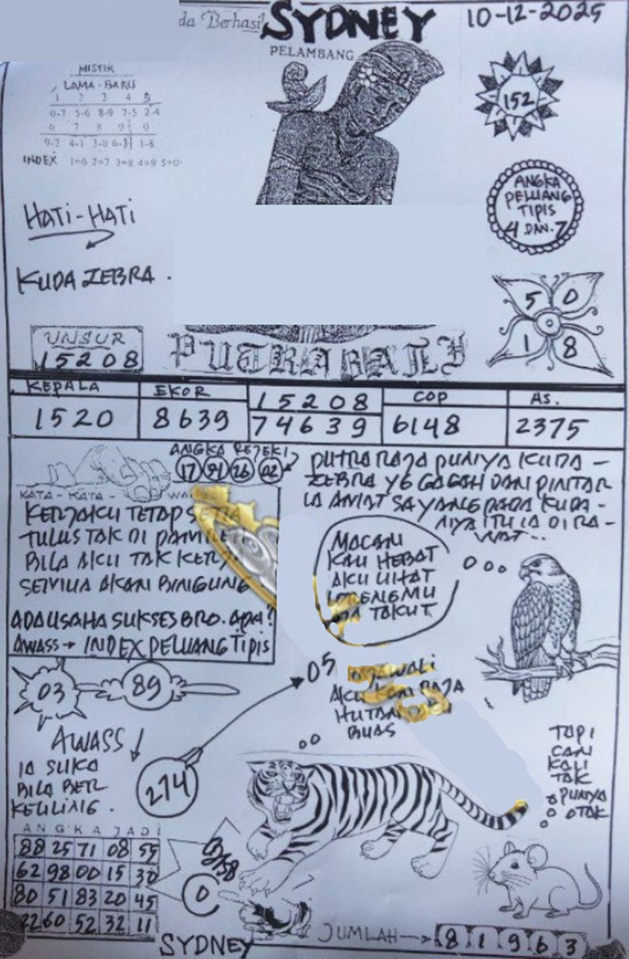 da Berhasil
SYDNEY
10-12-2025
PELAMBANG
MISTIK
LAMA - BARU
1 2 3 4 5
0-7 5-6 8-9 7-5 2-4
6 7 8 9 0
9-2 4-1 3-0 6-3 1-8
INDEX 1=6 2=7 3=8 4=9 5=0
152
ANGKA
PELUANG
TIPIS
4 DAN 7
HATI-HATI
KUDA ZEBRA.
5 0
1 8
UNSUR
15208
PUTRA BALI
KEPALA EKOR 15208 COP AS.
1520 8639 74639 6148 2375
ANGKA REJEKI?
17 91 26 02
KATA-KATA
KERJAKU TETAP SETIA
TULUS TAK DI
BILA AKU TAK
SEMUA AKAN BINGUNG
ADA USAHA SUKSES BRO. APA?
AWASS → INDEX PELUANG TIPIS
PUTRA RAJA PUNYA KUDA -
ZEBRA YG GAGAH DAN PINTAR
IA AMAT SAYANG PADA KUDA -
NYA ITU IA DI RA -
WAT...
MACAN
KAU HEBAT
AKU LIHAT
LORENGMU
TAKUT
03
89
05
AKU RAJA
HUTAN
BUAS
AWASS!
IA SUKA
BILA BER
KELILING.
274
TAPI
CAN
KAU
TAK
PUNYA
OTAK
ANGKA JADI
88 25 71 08 55
62 98 00 15 30
80 51 83 20 45
22 60 52 32 11
03/58
0
SYDNEY
JUMLAH → 8 1 9 6 3